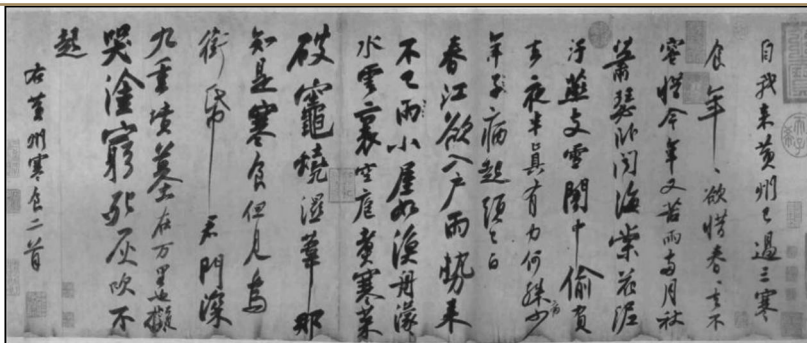 自我來黃州已過三寒
食年、欲惜春、去不
容惜今年又苦雨兩月秋
蕭瑟臥聞海棠花泥
汙燕支雪闇中偷負
去夜半真有力何殊少病
年子病起頭已白
春江欲入戶雨勢來
不已雨小屋如漁舟濛
水雲裏空庖煮寒菜
破竈燒濕葦那
知是寒食但見烏
銜帋君門深
九重墳墓在万里也擬
哭塗窮死灰吹不
起
右黃州寒食二首